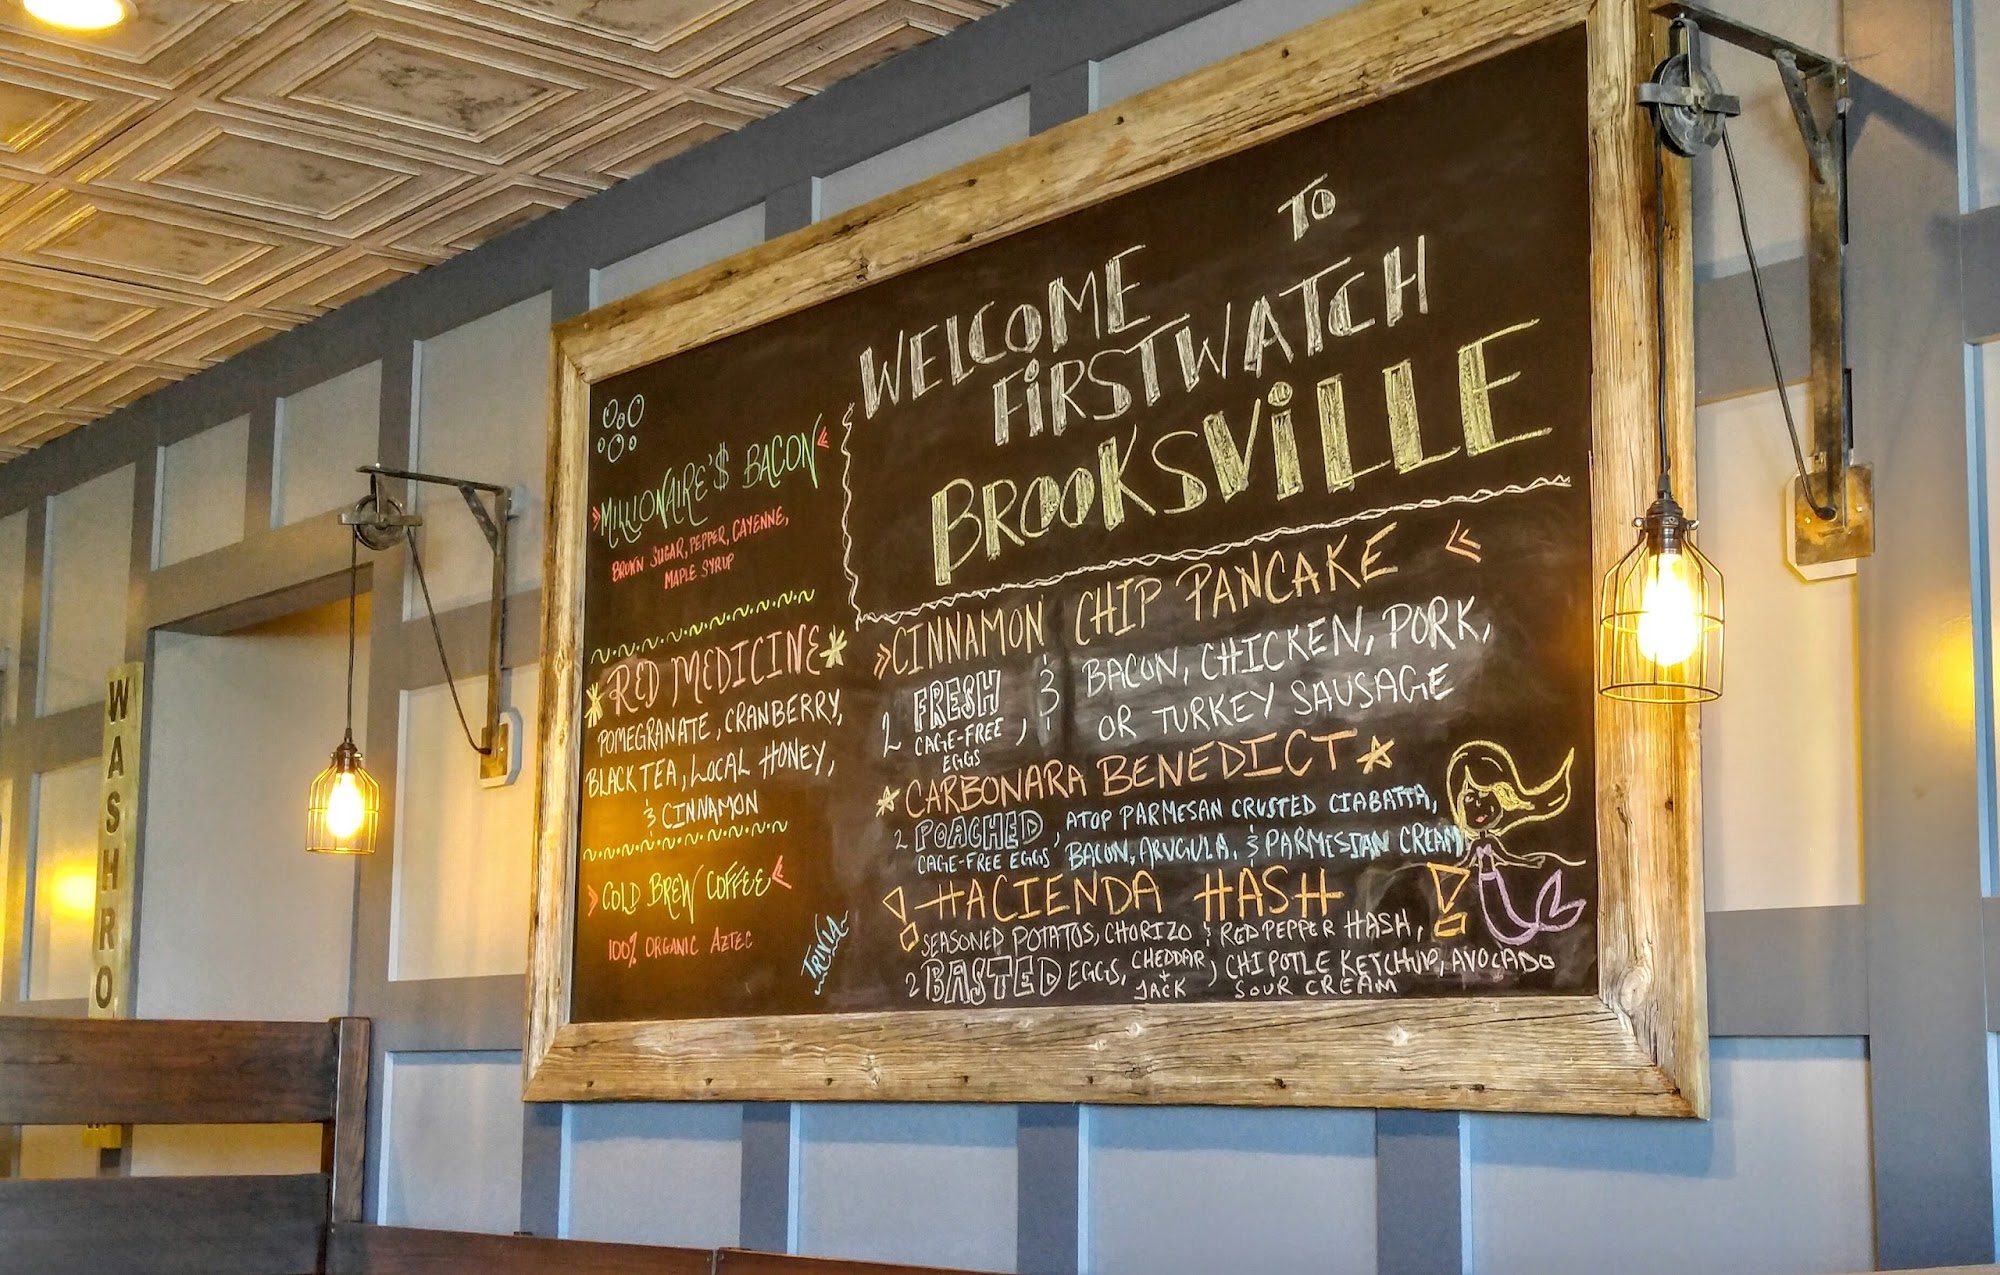 WELCOME TO
FIRSTWATCH
BROOKSVILLE
MILLIONAIRE'$ BACON
BROWN SUGAR, PEPPER, CAYENNE,
MAPLE SYRUP
RED MEDICINE
POMEGRANATE, CRANBERRY,
BLACK TEA, LOCAL HONEY,
& CINNAMON
COLD BREW COFFEE
100% ORGANIC AZTEC
TRIVIA
CINNAMON CHIP PANCAKE
2 FRESH CAGE-FREE EGGS, & BACON, CHICKEN, PORK,
OR TURKEY SAUSAGE
CARBONARA BENEDICT
2 POACHED, ATOP PARMESAN CRUSTED CIABATTA,
CAGE-FREE EGGS BACON, ARUGULA, & PARMISIAN CREAM
HACIENDA HASH
SEASONED POTATOS, CHORIZO & RED PEPPER HASH,
2 BASTED EGGS, CHEDDAR + JACK, CHIPOTLE KETCHUP, AVOCADO
SOUR CREAM
WASHRO